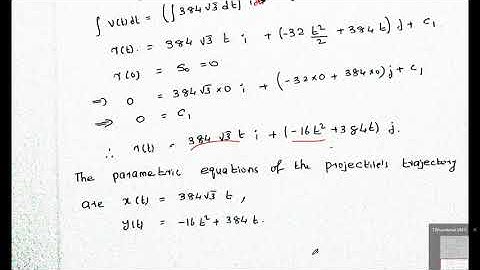 ∫ v(t)dt = (∫ 384 √3 dt) i
r(t) = 384 √3 t i + (-32 t²/2 + 384 t) j + C₁
r(0) = S₀ = 0
⇒ 0 = 384 √3 × 0 i + (-32×0 + 384×0) j + C₁
⇒ 0 = C₁
∴ r(t) = 384 √3 t i + (-16t² + 384t) j.
The parametric equations of the projectile's trajectory
are x(t) = 384√3 t,
y(t) = -16t² + 384t.